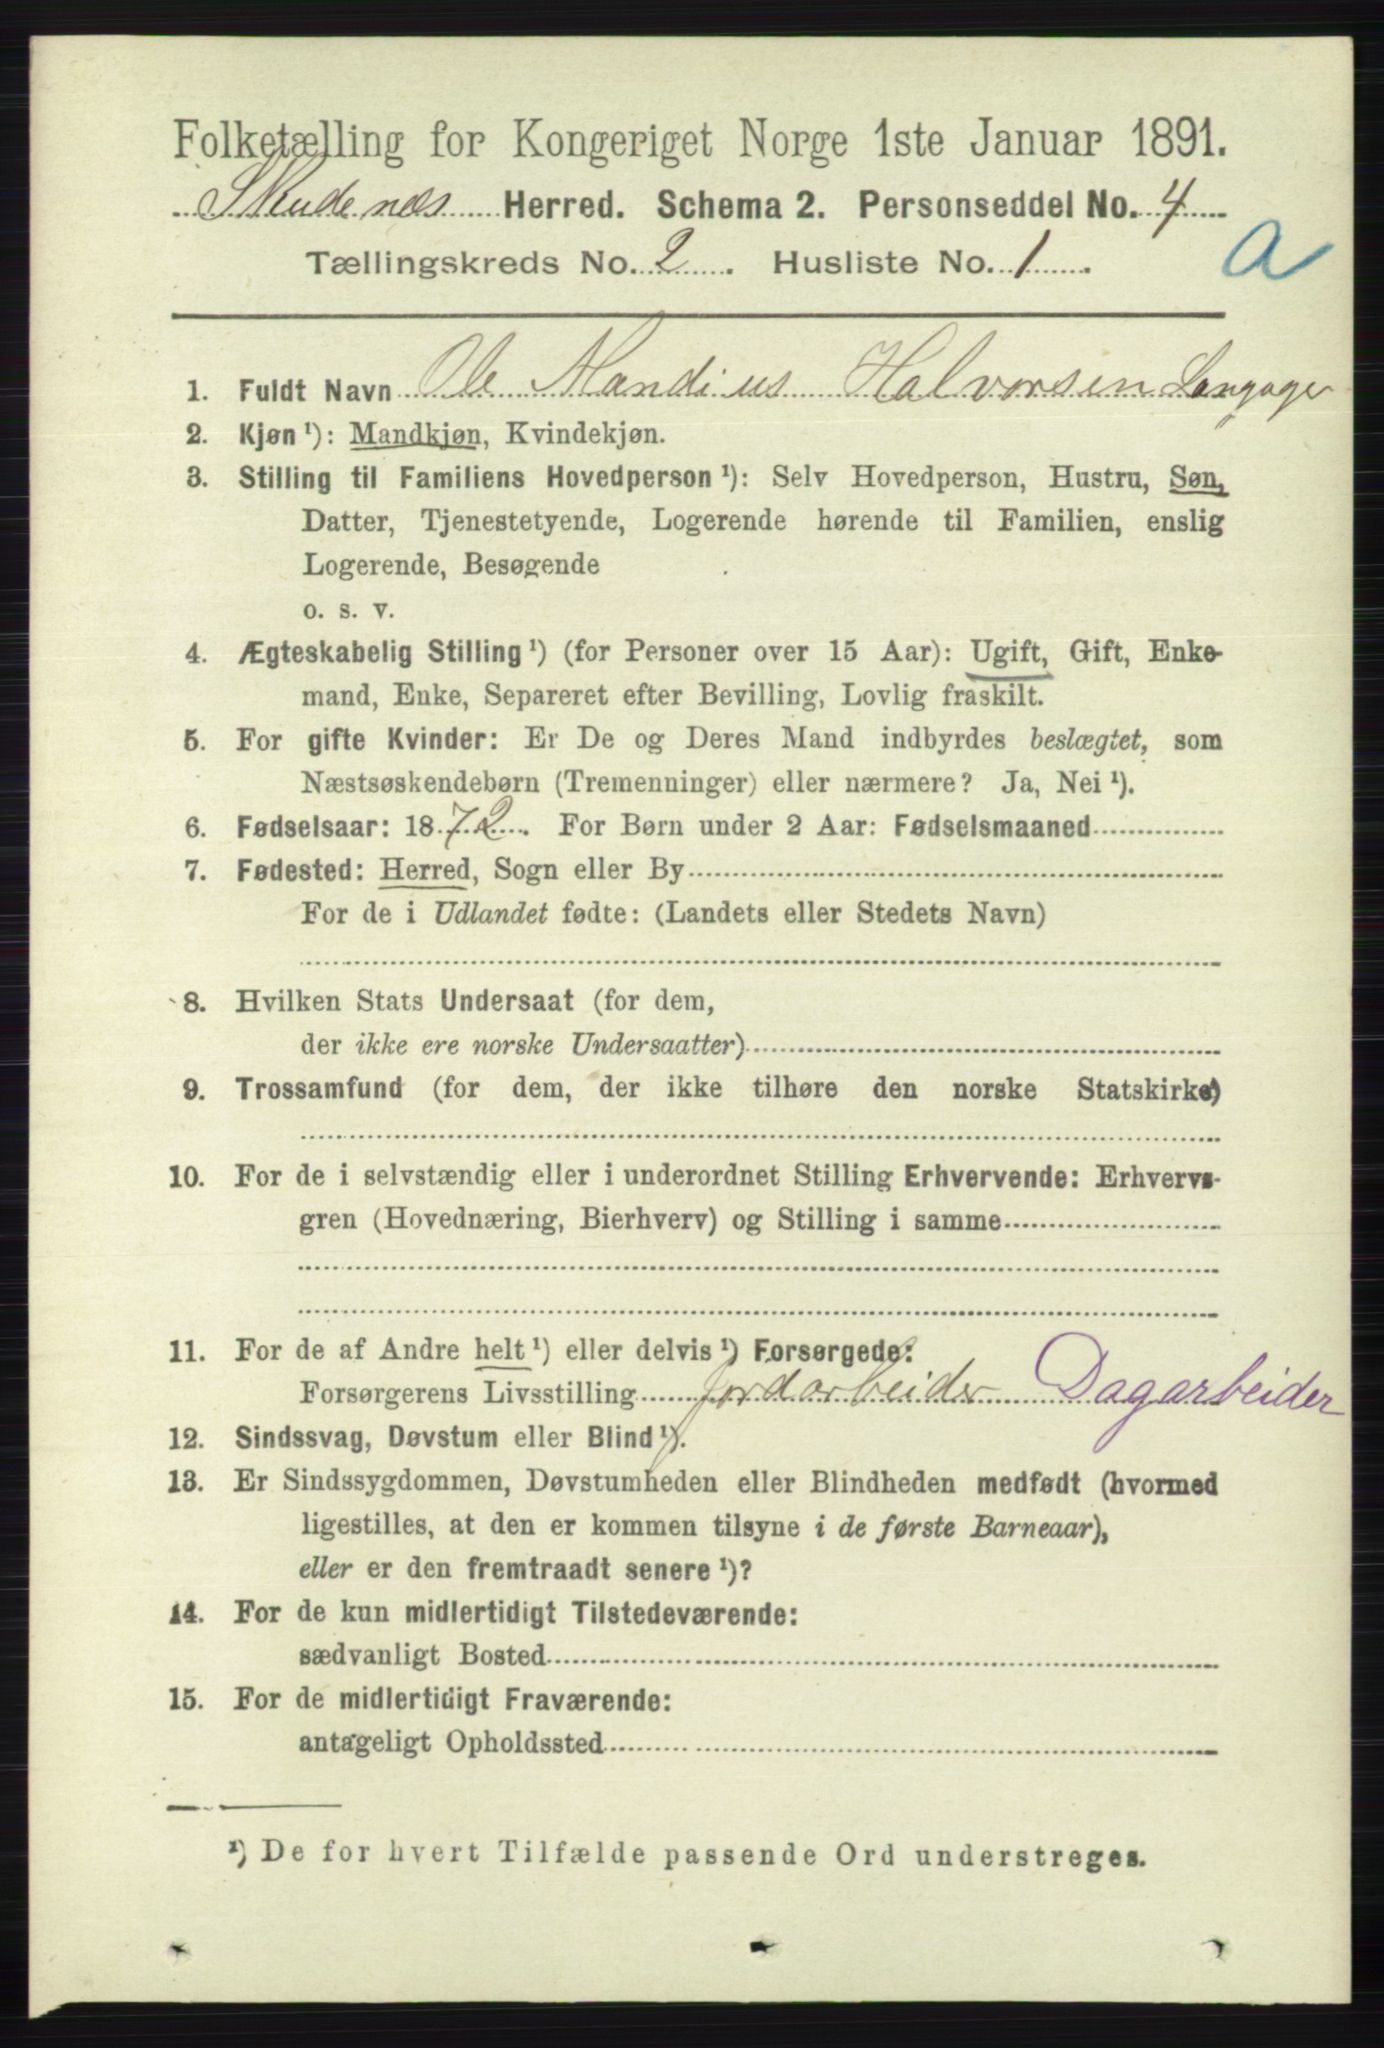 Folketælling for Kongeriget Norge 1ste Januar 1891.
Skudenæs Herred. Schema 2. Personseddel No. 4
Tællingskreds No. 2. Husliste No. 1.
a
1. Fuldt Navn Ole Mandius Halvorsen Langager
2. Kjøn ¹): Mandkjøn, Kvindekjøn.
3. Stilling til Familiens Hovedperson ¹): Selv Hovedperson, Hustru, Søn,
Datter, Tjenestetyende, Logerende hørende til Familien, enslig
Logerende, Besøgende
o. s. v.
4. Ægteskabelig Stilling ¹) (for Personer over 15 Aar): Ugift, Gift, Enke-
mand, Enke, Separeret efter Bevilling, Lovlig fraskilt.
5. For gifte Kvinder: Er De og Deres Mand indbyrdes beslægtet, som
Næstsøskendebørn (Tremenninger) eller nærmere? Ja, Nei ¹).
6. Fødselsaar: 1872. For Børn under 2 Aar: Fødselsmaaned
7. Fødested: Herred, Sogn eller By
For de i Udlandet fødte: (Landets eller Stedets Navn)
8. Hvilken Stats Undersaat (for dem,
der ikke ere norske Undersaatter)
9. Trossamfund (for dem, der ikke tilhøre den norske Statskirke)
10. For de i selvstændig eller i underordnet Stilling Erhvervende: Erhvervs-
gren (Hovednæring, Bierhverv) og Stilling i samme
11. For de af Andre helt ¹) eller delvis ¹) Forsørgede:
Forsørgerens Livsstilling Jordarbeider Dagarbeider
12. Sindssvag, Døvstum eller Blind ¹).
13. Er Sindssygdommen, Døvstumheden eller Blindheden medfødt (hvormed
ligestilles, at den er kommen tilsyne i de første Barneaar),
eller er den fremtraadt senere ¹)?
14. For de kun midlertidigt Tilstedeværende:
sædvanligt Bosted
15. For de midlertidigt Fraværende:
antageligt Opholdssted
¹) De for hvert Tilfælde passende Ord understreges.